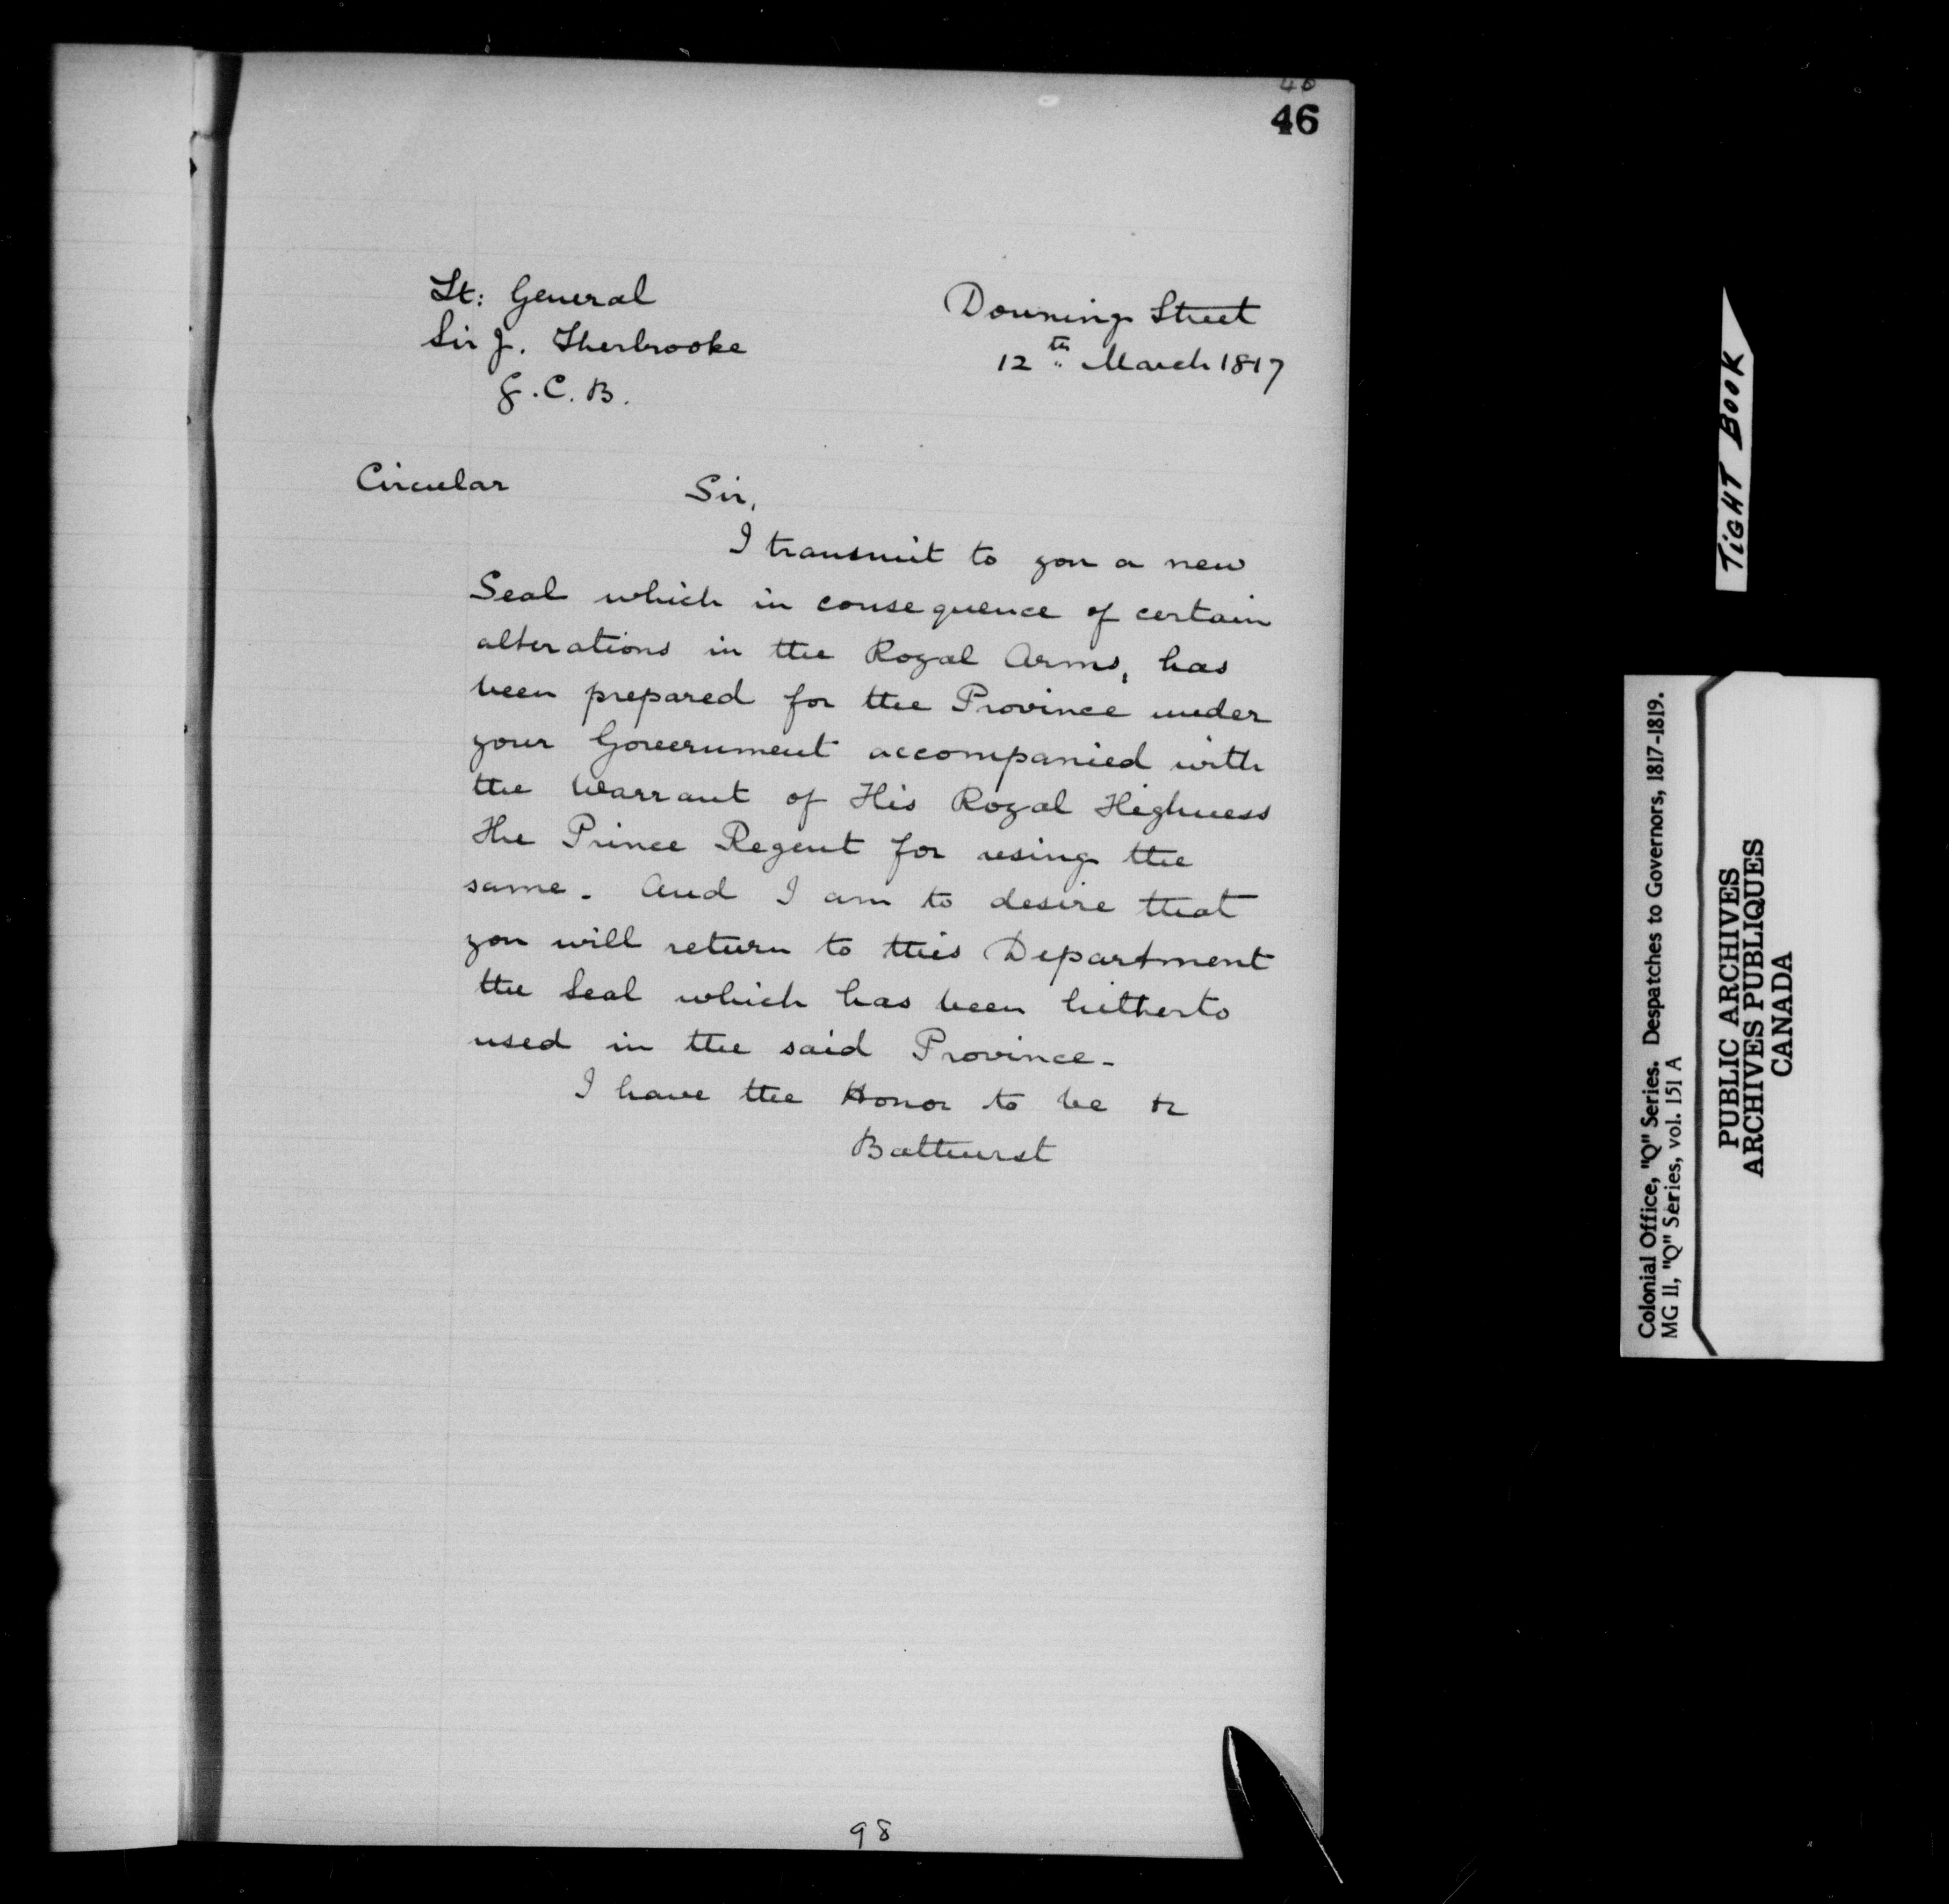 46
Lt: General
Sir J. Sherbrooke
G.C.B.
Downing Street
12th March 1817
Circular
Sir,
I transmit to you a new
Seal which in consequence of certain
alterations in the Royal Arms, has
been prepared for the Province under
your Government accompanied with
the Warrant of His Royal Highness
The Prince Regent for using the
same. And I am to desire that
you will return to this Department
the Seal which has been hitherto
used in the said Province -
I have the Honor to be &c
Bathurst
98
TIGHT BOOK
Colonial Office, "Q" Series. Despatches to Governors, 1817-1819.
MG 11, "Q" Series, vol. 151 A
PUBLIC ARCHIVES
ARCHIVES PUBLIQUES
CANADA